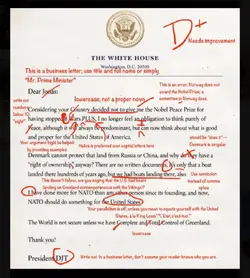 D+
Needs improvement
THE WHITE HOUSE
Washington, D.C. 20500
This is a business letter; use title and full name or simply
"Mr. Prime Minister"
Dear Jonas:
lowercase; not a proper noun
This is an error. Norway does not
award the Nobel Prize, a
committee in Norway does.
Considering your Country decided not to give me the Nobel Peace Prize for
having stopped 8 Wars PLUS, I no longer feel an obligation to think purely
Peace, although it will always be predominant, but can now think about what is good
and proper for the United States of America.
write out
numbers
below 10;
"eight"
Your argument might be helped
by providing examples
Italics is preferred over capital letters here
should be "does it"-
Denmark is singular
Denmark cannot protect that land from Russia or China, and why do they have a
"right of ownership" anyway? There are no written documents, it's only that a boat
landed there hundreds of years ago, but we had boats landing there, also.
This doesn't follow, are you arguing that the U.S. had boats
landing on Greenland contemporaneous with the Vikings?
Use semicolon
instead of comma
I have done more for NATO than any other person since its founding, and now,
NATO should do something for the United States.
Your parallelism is off, unless you mean to equate yourself with the United
States, à la King Lewis "L'état, c'est moi."
The World is not secure unless we have Complete and Total Control of Greenland.
lowercase
Thank you!
President DJT
Write out in a business letter, don't assume your reader knows who you are.